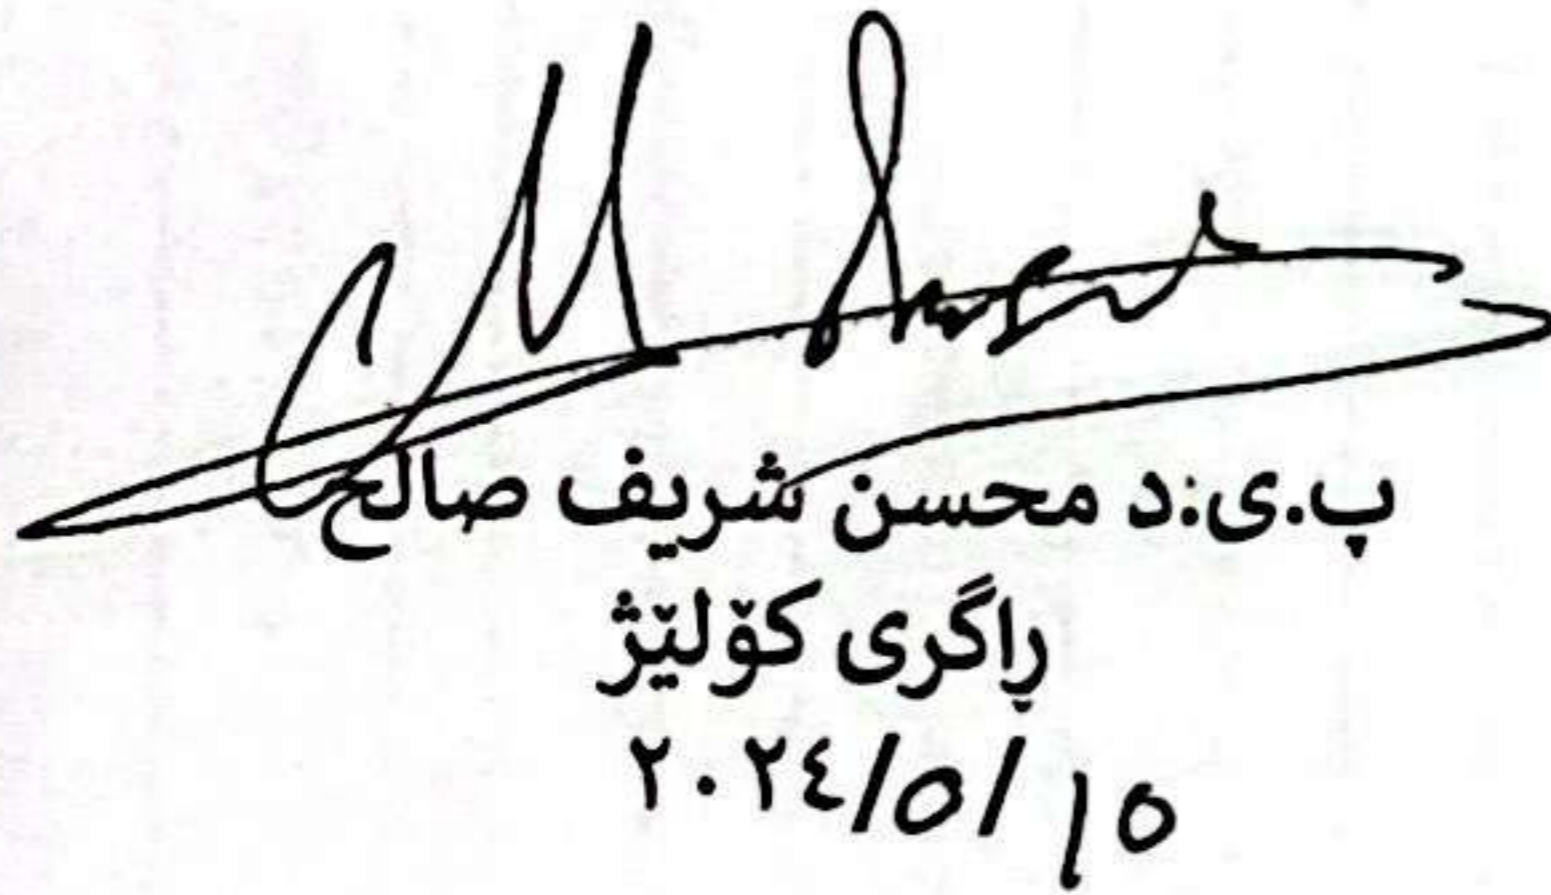 پ.ی:د محسن شریف صالح
ڕاگری کۆلێژ
٢٠٢٤/٥/١٥